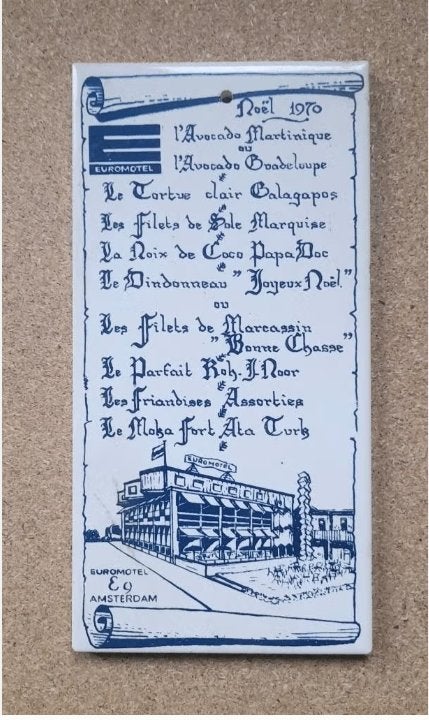 Noël 1970
EUROMOTEL
l'Avocado Martinique
ou
l'Avocado Guadeloupe
Le Tortue clair Galagapos
Les Filets de Sole Marquise
La Noix de Coco Papa Doc
Le Dindonneau "Joyeux Noël"
ou
Les Filets de Marcassin
"Bonne Chasse"
Le Parfait Koh-I-Noor
Les Friandises Assorties
Le Moka Fort Ata Turk
EUROMOTEL
EUROMOTEL
E9
AMSTERDAM